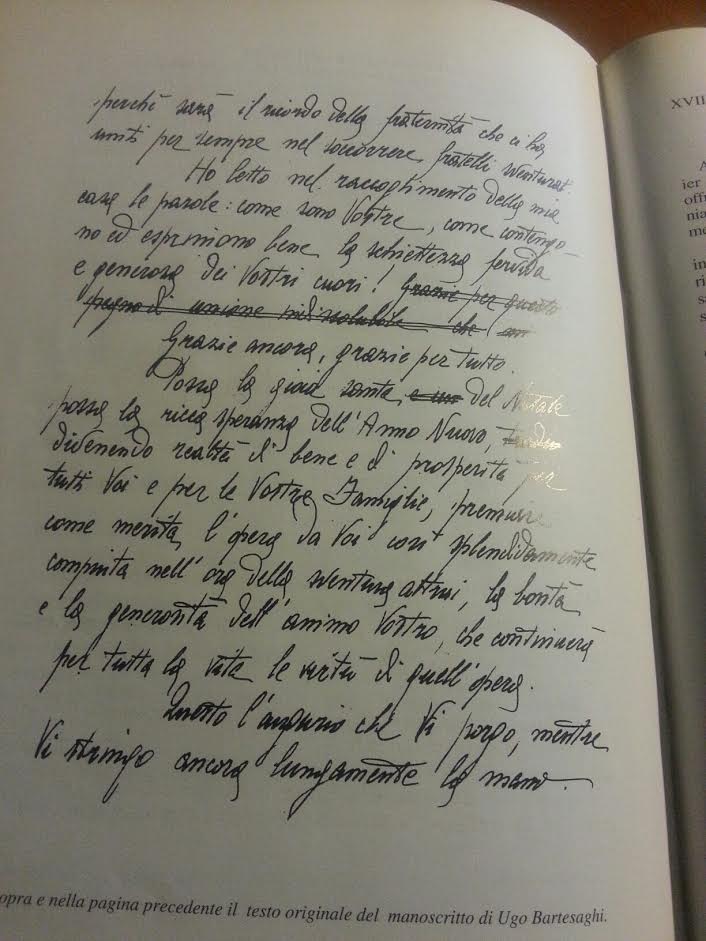 perchè sarà il ricordo della fraternità che ci ha
uniti per sempre nel soccorrere fratelli sventurati.
Ho letto nel raccoglimento della mia
casa le parole: come sono Vostre, come contengo-
no ed esprimono bene la schiettezza fervida
e generosa dei Vostri cuori! Grazie per questo
pegno di unione indissolubile che
Grazie ancora, grazie per tutto.
Possa la gioia santa e un del Natale
possa la ricca speranza dell'Anno Nuovo,
divenendo realtà di bene e di prosperità per
tutti Voi e per le Vostre Famiglie, premiare
come merita, l'opera da Voi così splendidamente
compiuta nell'ora della sventura altrui, la bontà
e la generosità dell'animo Vostro, che continuerà
per tutta la vita le virtù di quell'opera.
Questo l'augurio che Vi porgo, mentre
Vi stringo ancora lungamente la mano.
opra e nella pagina precedente il testo originale del manoscritto di Ugo Bartesaghi.
XVII
A
ier
offr
nia
me
in
ri
s